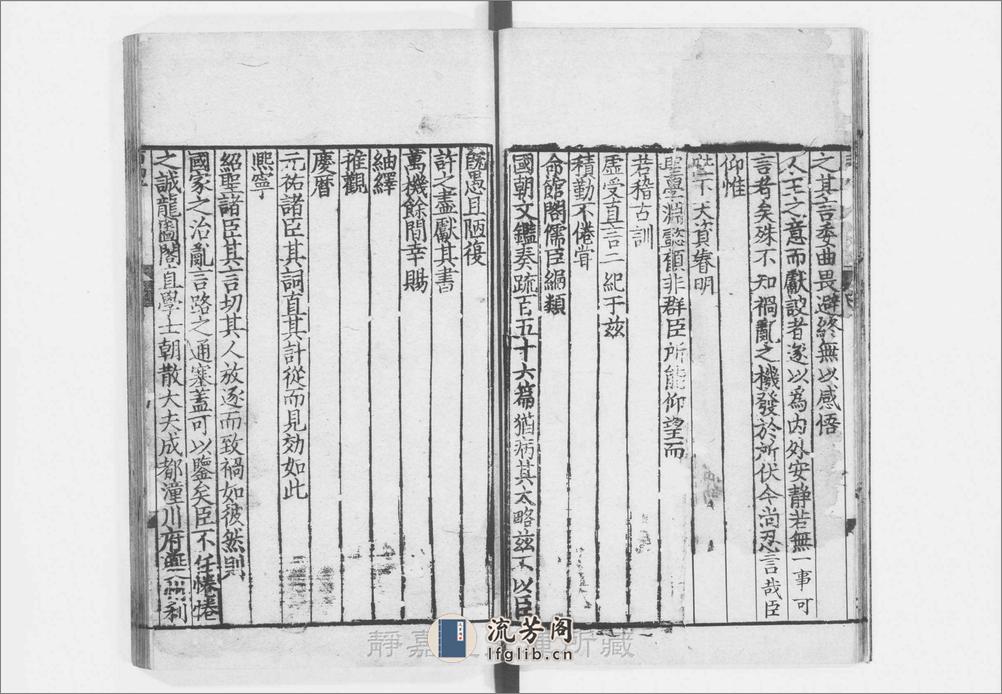 之其言委曲畏避終無以感悟
人主之意而獻諛者遂以為內外安靜若無一事可
言者矣殊不知禍亂之機發於所伏今尚忍言哉臣
仰惟
陛下天資睿明
聖學淵懿顧非群臣所能仰望而
若稽古訓
虛受直言二紀于茲
積勤不倦甞
命館閣儒臣編類
國朝文鑑奏疏百五十六篇猶病其太略茲不以臣
愚且陋復
許之盡獻其書
萬機餘閒幸賜
紬繹
推觀
慶曆
元祐諸臣其詞直其計從而見効如此
熙寧
紹聖諸臣其言切其人放逐而致禍如彼然則
國家之治亂言路之通塞蓋可以鑒矣臣不任惓惓
之誠龍圖閣直學士朝散大夫成都潼川府夔州利
靜嘉 所藏
流芳阁
lfglib.cn